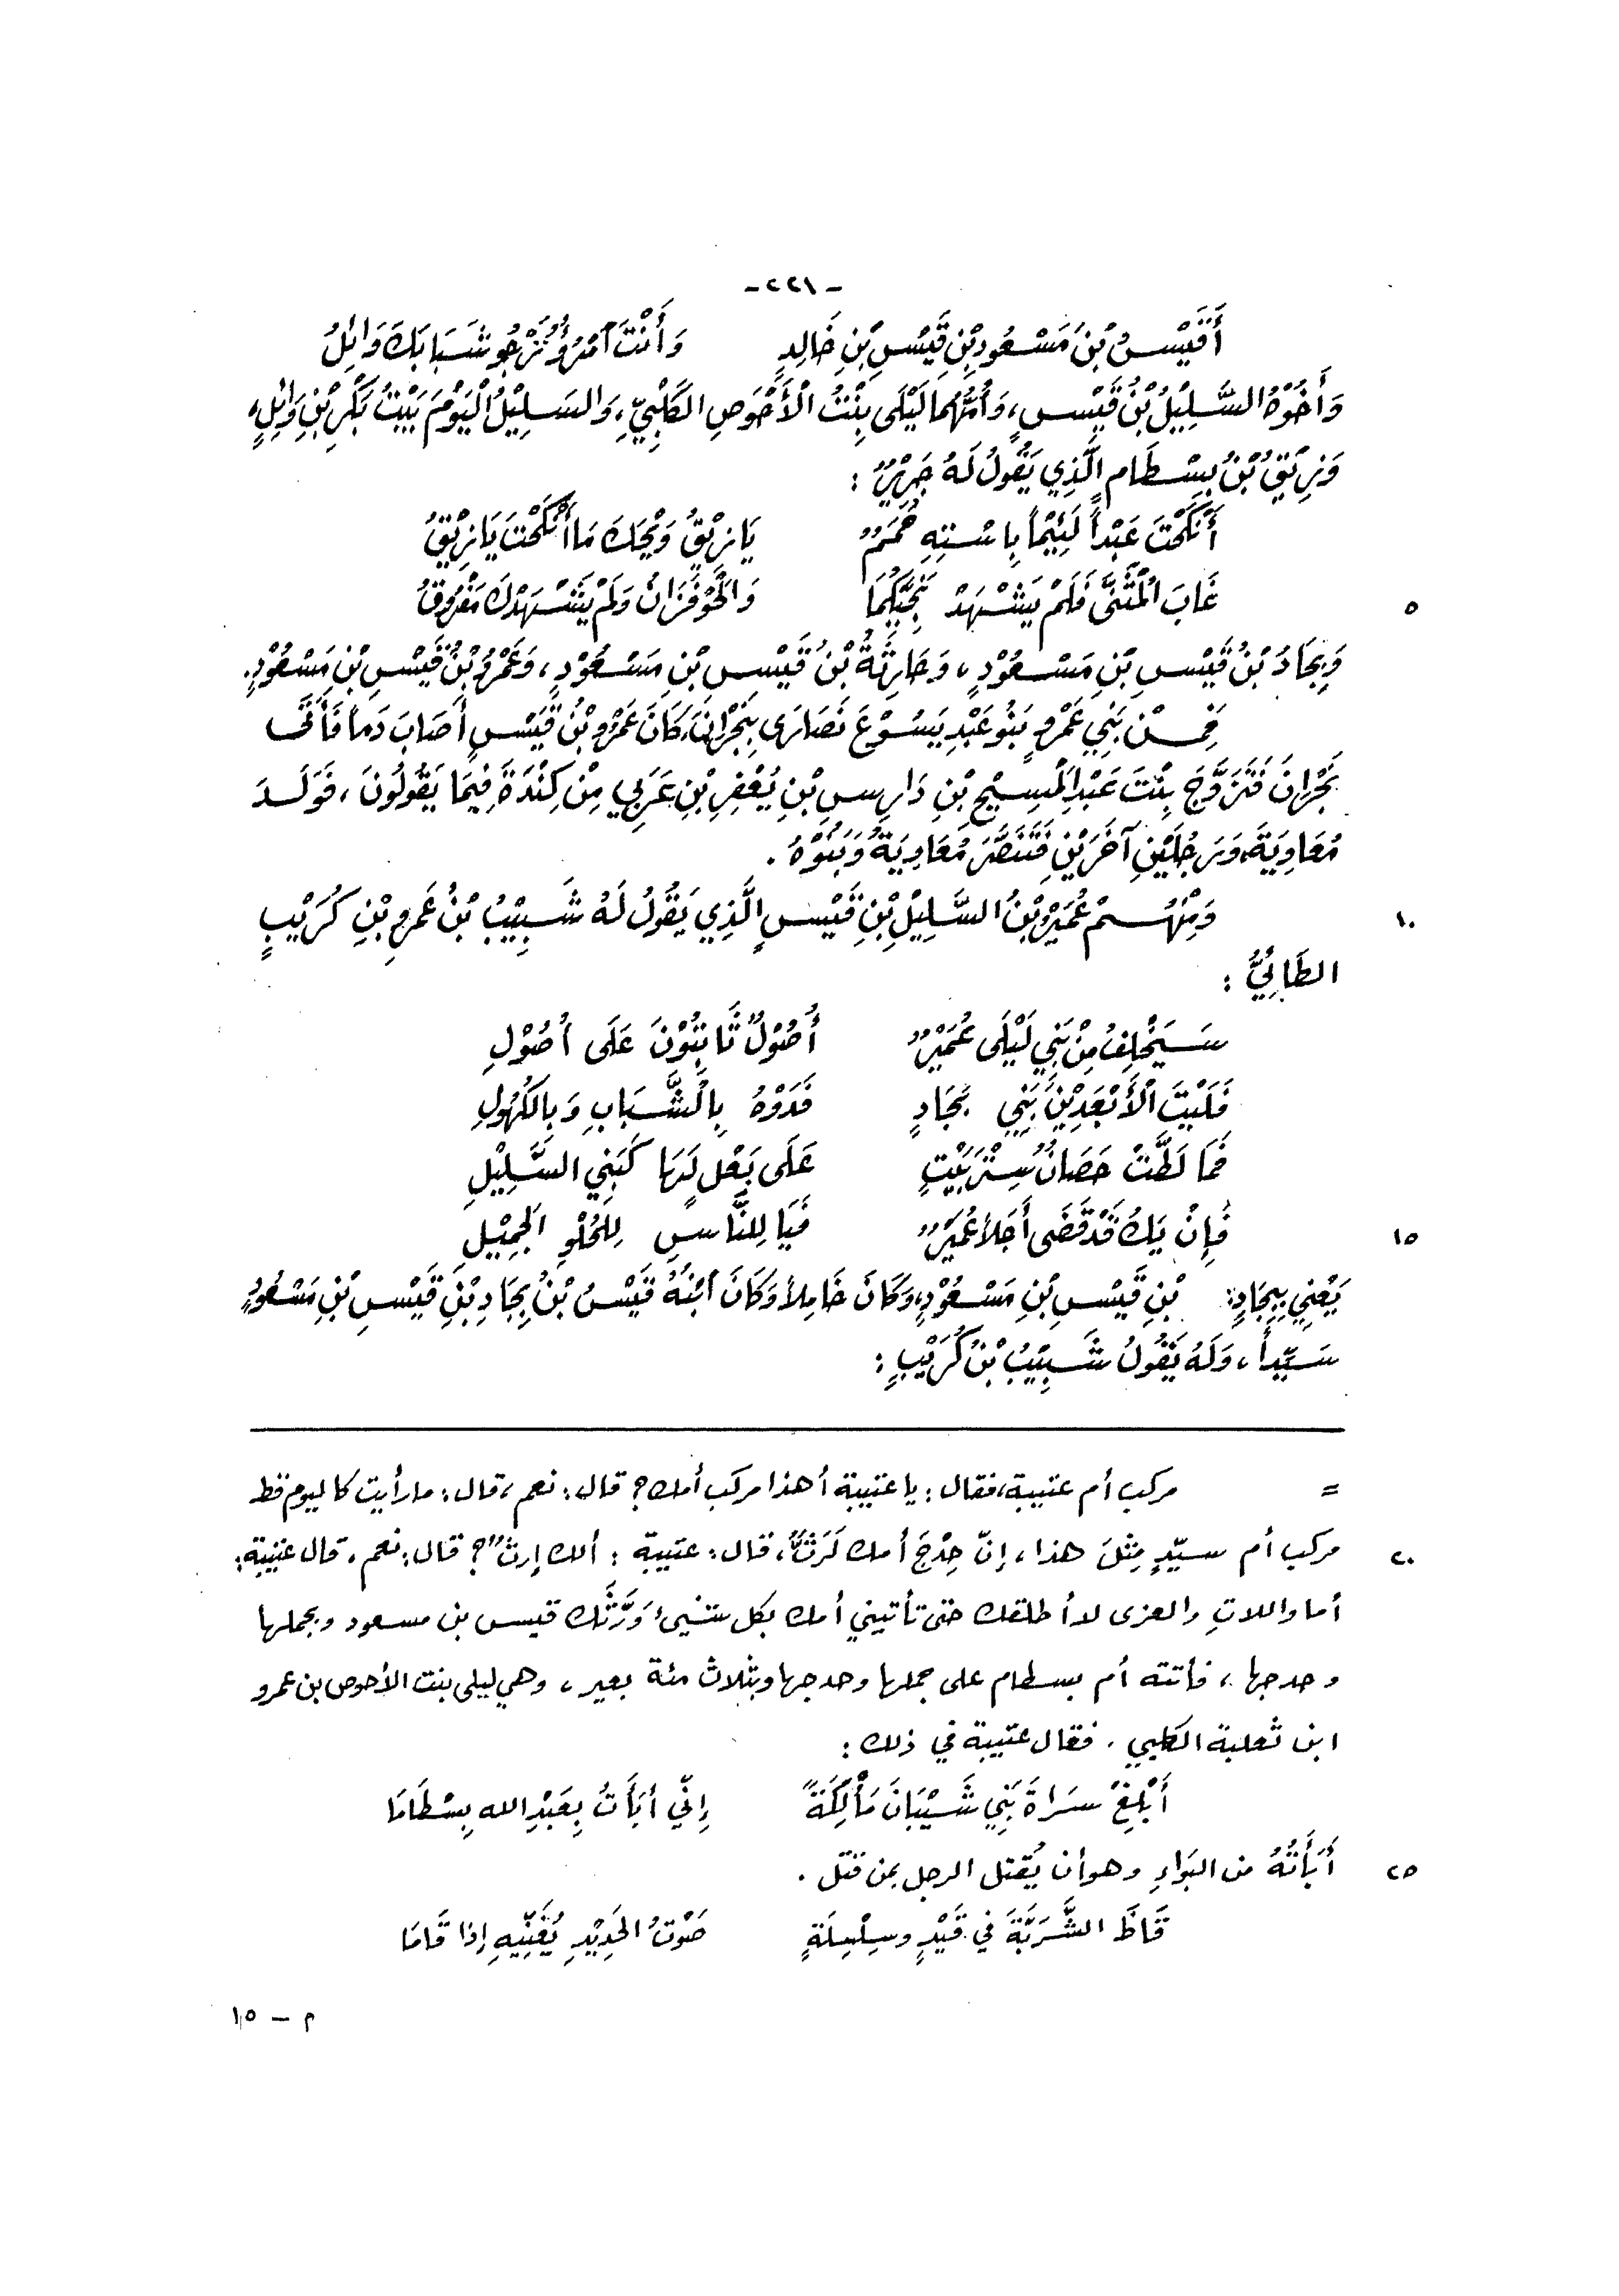 -٢٢١-
أَقَيْسُ بْنَ مَسْعُودِ بْنِ قَيْسِ بْنِ خَالِدٍ وَأَنْتَ آمْرُؤٌ تَرْجُو شَبَابَكَ وَائِلُ
وَأَخُوْهُ السَّلِيْلُ بْنُ قَيْسٍ، وَأُمُّهُمَا لَيْلَى بِنْتُ الْأَحْوَصِ الكَلْبِيِّ، وَالسَلِيْلُ الْيَوْمَ بَيْتُ بَكْرِ بْنِ وَائِلٍ،
وَزِيْقُ بْنُ بِسْطَامٍ الَّذِي يَقُولُ لَهُ جَرِيْرٌ :
أَنْكَحْتَ عَبْداً لَئِيْماً بِاسْتِهِ حُمَمٌ يَا زِيْقُ وَيْحَكَ مَا أَنْكَحْتَ يَا زِيْقُ
٥ غَابَ الْمُثَنَّى فَلَمْ يَشْهَدْ نَجِيَّكُمَا وَالْحَوْفَزَانُ وَلَمْ يَشْهَدْكَ مَفْرُوقُ
وَبِجَادُ بْنُ قَيْسِ بْنِ مَسْعُوْدٍ، وَحَارِثَةُ بْنُ قَيْسِ بْنِ مَسْعُوْدٍ، وَعَمْرُو بْنُ قَيْسِ بْنِ مَسْعُوْدٍ.
فَمِنْ بَنِي عَمْرٍو بَنُو عَبْدِ يَسُوْعَ نَصَارَى بِنَجْرَانَ، كَانَ عَمْرُو بْنُ قَيْسٍ أَصَابَ دَماً فَأَتَى
نَجْرَانَ فَتَزَوَّجَ بِنْتَ عَبْدِ الْمَسِيْحِ بْنِ دَارِسِ بْنِ يُعْفِرِ بْنِ عَرَبِي مِنْ كِنْدَةَ فِيْمَا يَقُولُونَ، فَوَلَدَ
مُعَاوِيَةَ، وَرَجُلَيْنِ آخَرَيْنِ فَتَنَصَّرَ مُعَاوِيَةُ وَبَنُوْهُ .
١٠ وَمِنْهُمْ عُمَيْرُ بْنُ السَّلِيْلِ بْنِ قَيْسٍ الَّذِي يَقُولُ لَهُ شَبِيْبُ بْنُ عَمْرِو بْنِ كُرَيْبٍ
الطَائِيُّ :
سَيَخْلِفُ مِنْ بَنِي لَيْلَى عُمَيْرٌ أُصُوْلٌ ثَابِتُوْنَ عَلَى أُصُوْلِ
فَلَيْتَ الْأَبْعَدِيْنَ بَنِي بِجَادٍ فَدَوْهُ بِالشَّبَابِ وَبِالكُهُولِ
فَمَا لَطَّتْ حَصَانٌ سِتْرَ بَيْتٍ عَلَى بَعْلٍ لَهَا كَبَنِي السَّلِيْلِ
١٥ فَإِنْ يَكُ قَدْ قَضَى أَجَلاً عُمَيْرٌ فَيَا لِلنَّاسِ لِلحُلْوِ الجَمِيْلِ
يَعْنِي بِبِجَادٍ: بْنِ قَيْسِ بْنِ مَسْعُوْدٍ، وَكَانَ خَامِلاً وَكَانَ آبْنُهُ قَيْسُ بْنُ بِجَادِ بْنِ قَيْسِ بْنِ مَسْعُوْدٍ
سَيِّداً، وَلَهُ يَقُولُ شَبِيْبُ بْنُ كُرَيْبٍ :
= مركب أم عتيبة، فقال: يا عتيبة أهذا مركب أمك؟ قال: نعم، قال: ما رأيت كاليوم قط
٢٠ مركب أم سيّدٍ مِثلَ هذا، إنّ حِدْجَ أمك لَرَثٌّ، قال: عتيبة: ألك إرث؟ قال: نعم، قال عتيبة:
أما واللاتِ والعزى لا أطلقك حتى تأتيني أمك بكل شيئ وَرَّثَك قيس بن مسعود وبجملها
وحدجها، فأتته أم بسطام على جملها وحدجها وبثلاث مئة بعير، وهي ليلى بنت الأحوص بن عمرو
ابن ثعلبة الكلبي. فقال عتيبة في ذلك :
أَبْلِغْ سَرَاةَ بَنِي شَيْبَانَ مَأْلُكَةً إِنّي أَبَأتُ بِعَبْدِ الله بِسْطَامَا
٢٥ أَبَأْتُهُ من البَوَاءِ وهو أن يُقتل الرجل بمن قتل .
قَاظَ الشَّرَبَّةَ في قَيْدٍ وسِلْسِلَةٍ صَوْتُ الحَدِيْدِ يُغَنِّيهِ إذا قَامَا
م - ١٥